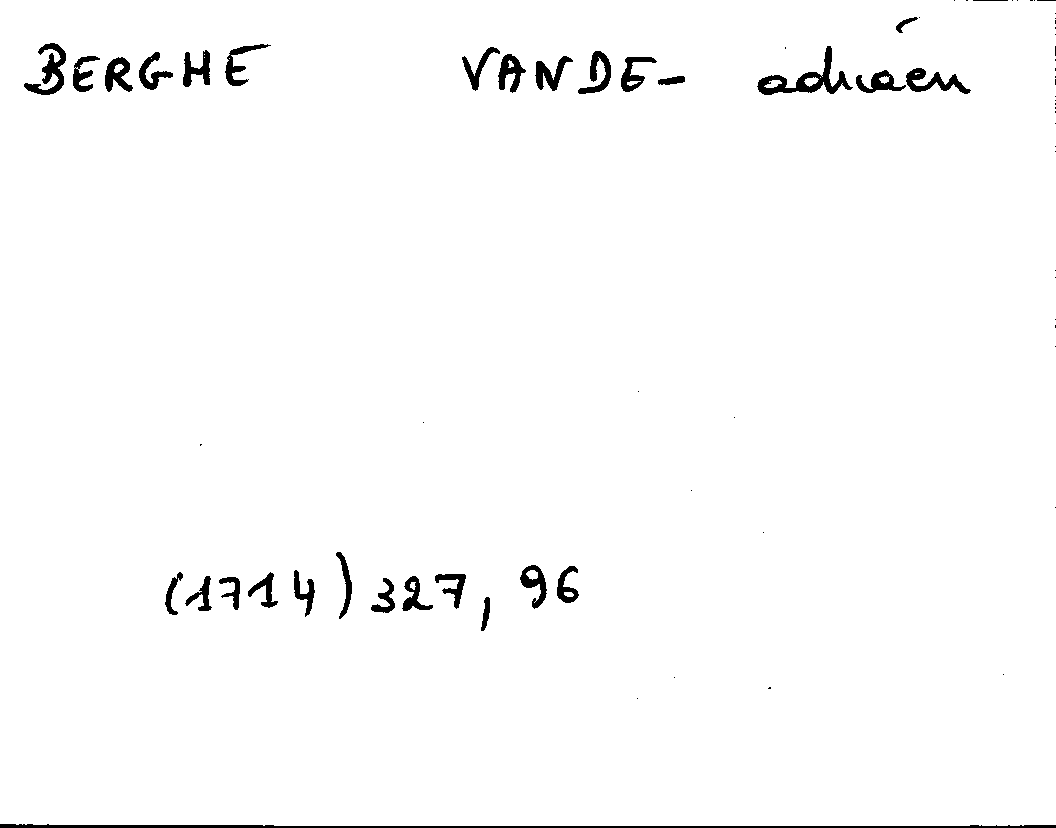 BERGHE VANDE- adriaen
(1714) 327, 96